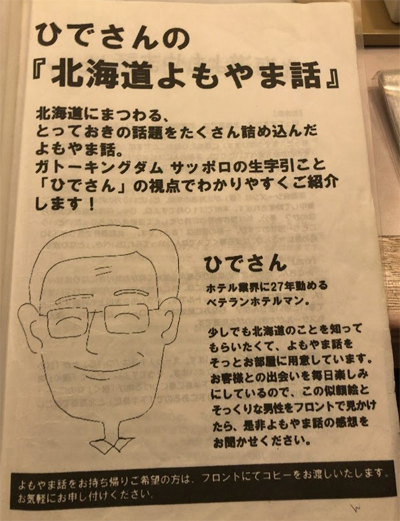 ひでさんの
『北海道よもやま話』
北海道にまつわる、
とっておきの話題をたくさん詰め込んだ
よもやま話。
ガトーキングダム サッポロの生字引こと
「ひでさん」の視点でわかりやすくご紹介
します！
ひでさん
ホテル業界に27年勤める
ベテランホテルマン。
少しでも北海道のことを知って
もらいたくて、よもやま話を
そっとお部屋に用意しています。
お客様との出会いを毎日楽しみ
にしているので、この似顔絵と
そっくりな男性をフロントで見かけ
たら、是非よもやま話の感想を
お聞かせください。
よもやま話をお持ち帰りご希望の方は、フロントにてコピーをお渡しいたします。
お気軽にお申し付けください。